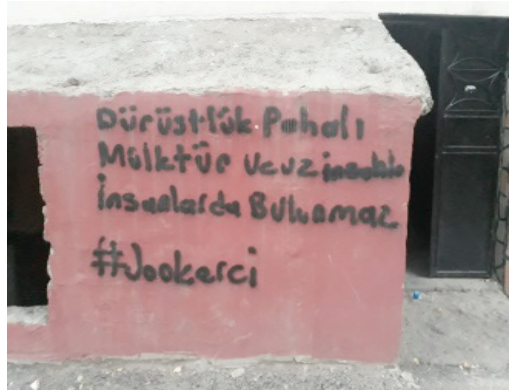 Dürüstlük Pahalı
Mülktür Ucuz
İnsanlarda Bulunmaz
#Jookerci